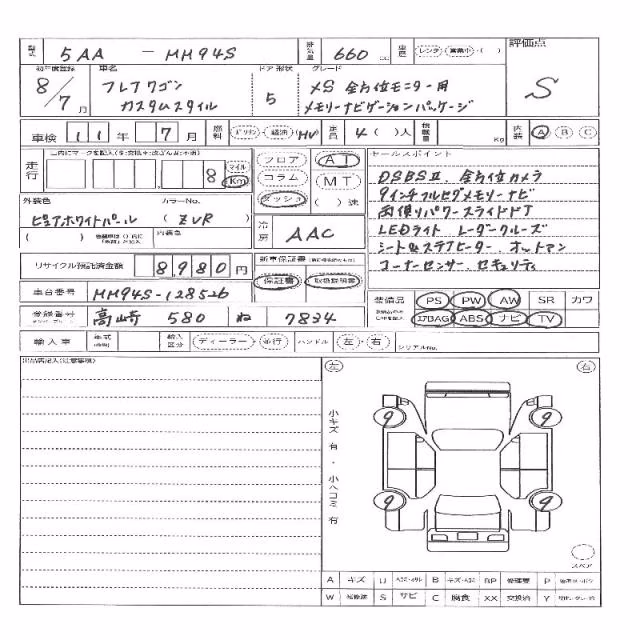 型式 5AA - MM94S 排気量 660 cc 車歴 レンタ・営業中・( ) 評価点
初年度登録 車名 ドア形状 グレード
8/7月 フレアワゴン カスタムスタイル 5 XS 全方位モニター用 メモリーナビゲーションパッケージ S
車検 11年 7月 燃料 ガソリン・軽油・HV 定員 4( )人 積載量 Kg 内装 A B C
走行 8 マイル Km
フロア AT
コラム MT
ダッシュ ( )速
セールスポイント
DSBSⅡ 全方位カメラ
9インチフルセグメモリーナビ
両側リパワースライドドア
LEDライト レーダークルーズ
シート&ステアヒーター オットマン
コーナーセンサー セキュリティ
外装色 カラーNo.
ピュアホワイトパール ( ZVR )
内装色
冷房 AAC
リサイクル預託済金額 8,980円
新車保証書
保証書 取扱説明書
車台番号 MM94S-128526
登録番号 高崎 580 ね 7834
装備品 PS PW AW SR カワ
エアBAG ABS ナビ TV
輸入車 年式 輸入区分 ディーラー・並行 ハンドル 左・右 シリアルNo.
出品店記入(注意事項)
左 右
小キズ有・小ヘコミ有
9 9
9 9
スペア
A キズ U B BP 修理要 P
W S サビ C 腐食 XX 交換済 Y